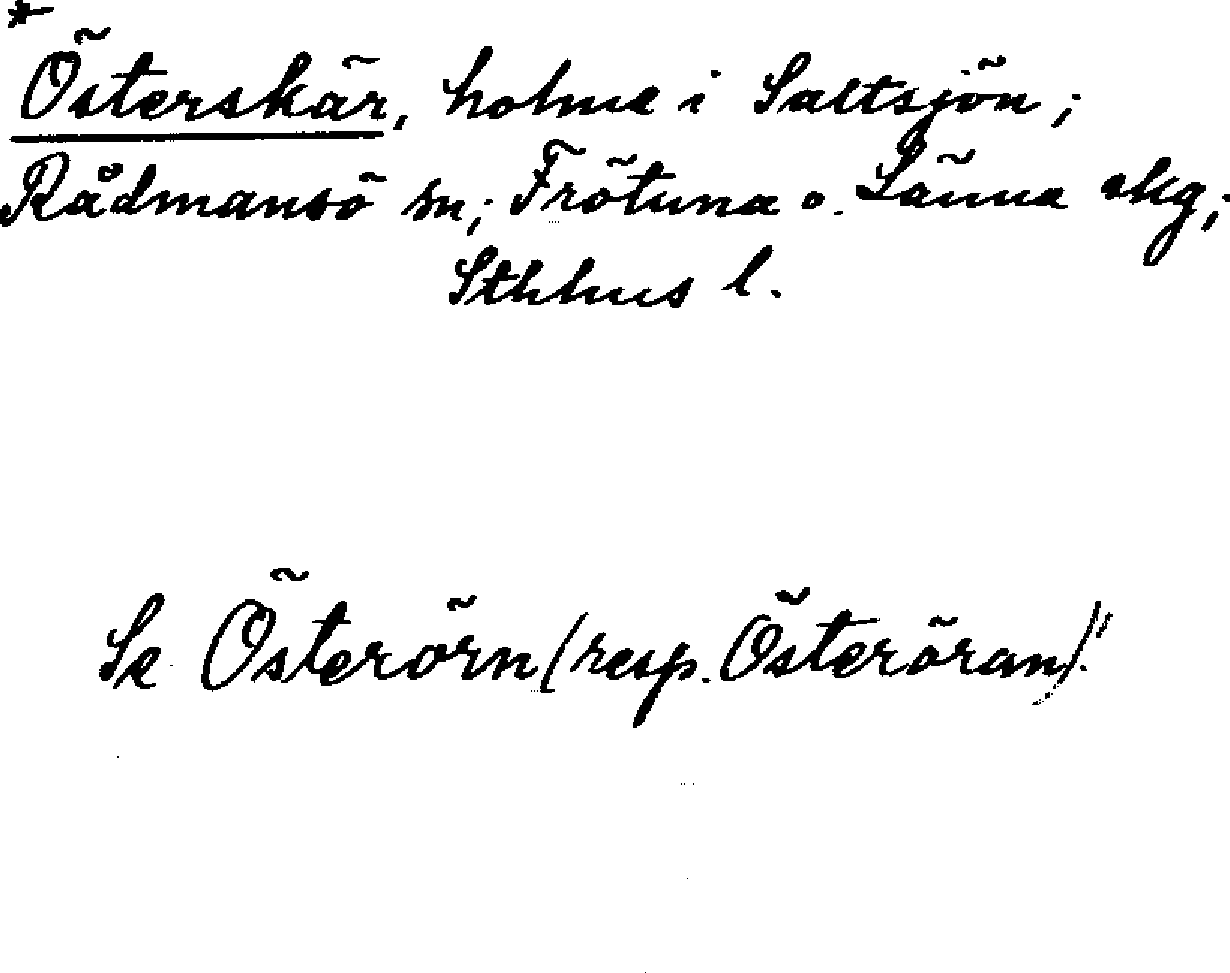 *
Österskär, holme i Saltsjön;
Rådmansö sn; Frötuna o. Länna skg;
Sthlms l.
Se Österörn (resp. Österöran)!"